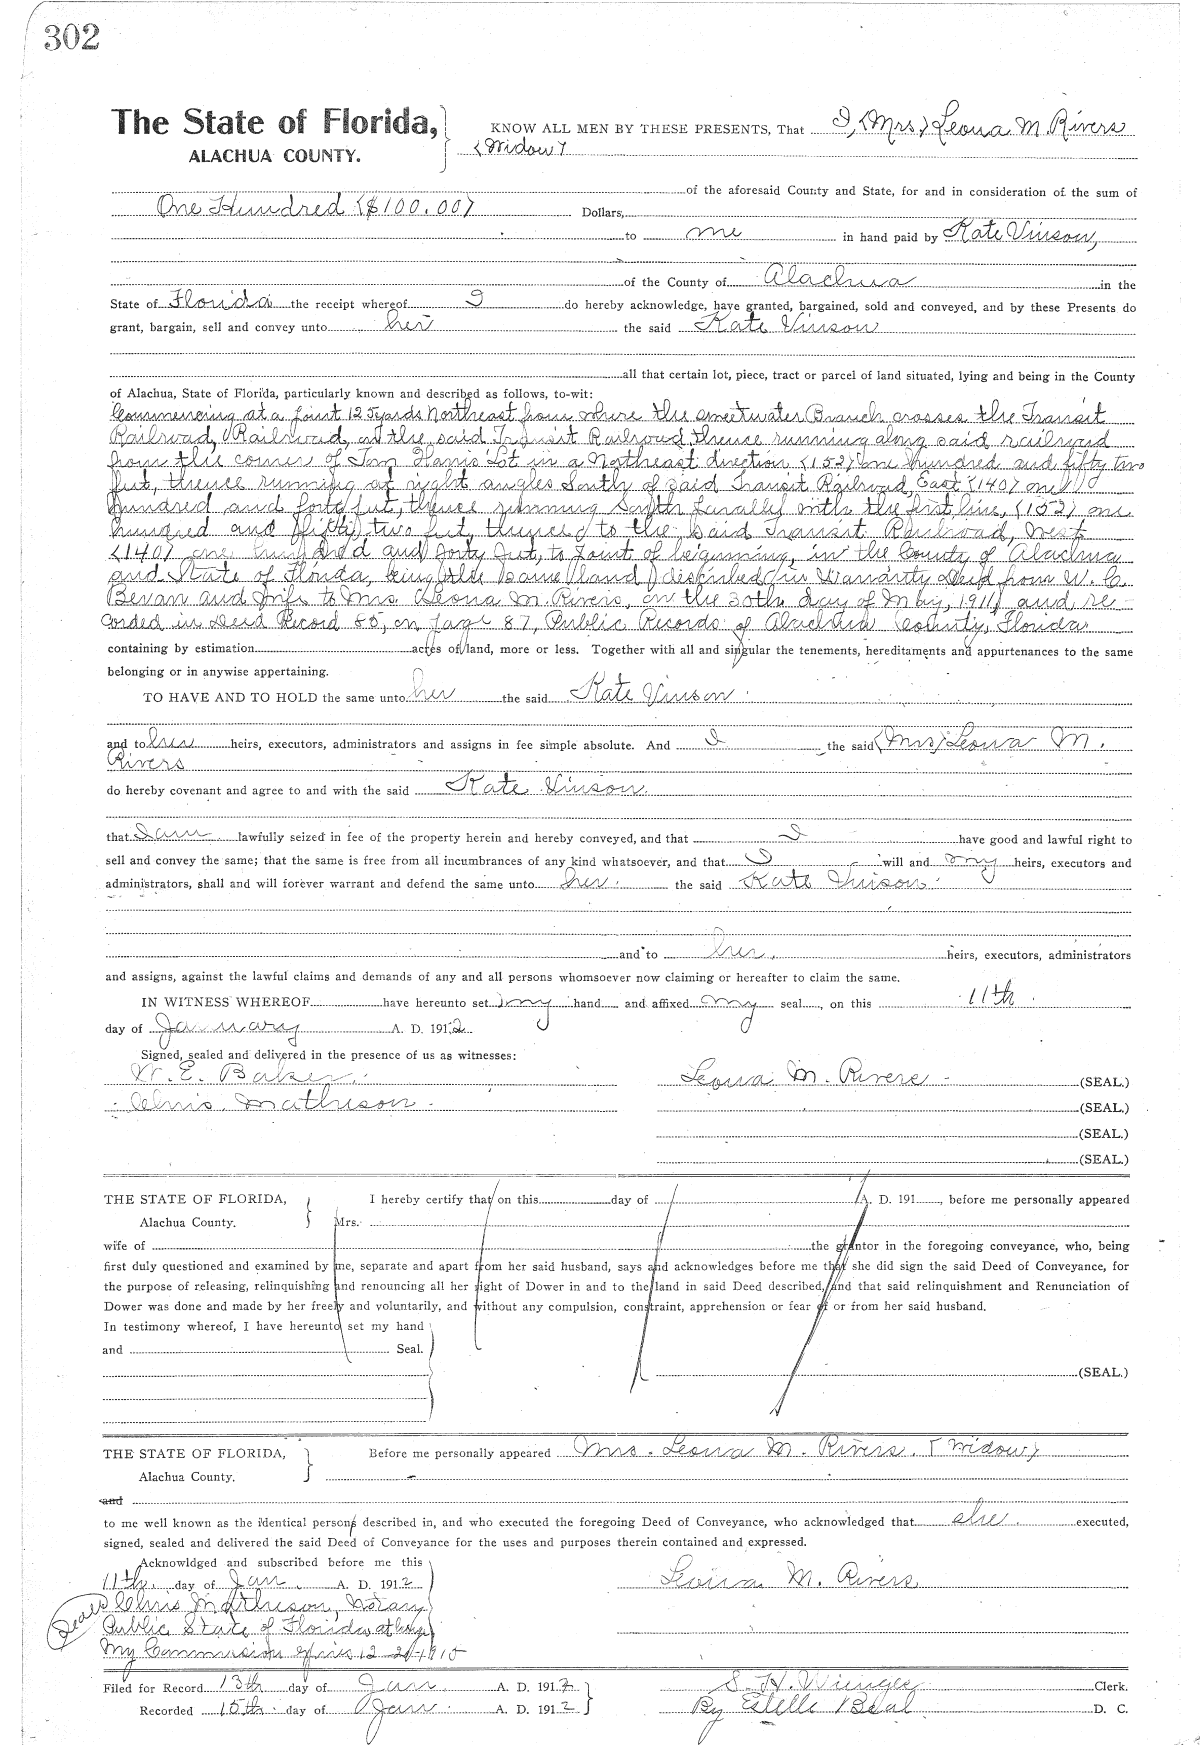 302
The State of Florida, KNOW ALL MEN BY THESE PRESENTS, That I, (Mrs.) Leona M. Rivers
ALACHUA COUNTY. (Widow)
of the aforesaid County and State, for and in consideration of the sum of
One Hundred ($100.00) Dollars,
to me in hand paid by Kate Vinson,
of the County of Alachua in the
State of Florida the receipt whereof I do hereby acknowledge, have granted, bargained, sold and conveyed, and by these Presents do
grant, bargain, sell and convey unto her the said Kate Vinson
all that certain lot, piece, tract or parcel of land situated, lying and being in the County
of Alachua, State of Florida, particularly known and described as follows, to-wit:
Commencing at a point 125 yards Northeast from where the sweetwater Branch crosses the Transit
Railroad, Railroad, on the said Transit Railroad thence running along said railroad
from the corner of Harris Lot in a Northeast direction (152) one hundred and fifty two
feet, thence running at right angles South of said Transit Railroad, East (140) one
hundred and forty feet, thence running South parally with the first line, (152) one
hundred and fifty two feet, thence to the said Transit Railroad, West
(140) one hundred and forty feet, to point of beginning, in the County of Alachua
and State of Florida, being the same land described in Warranty Deed from W. C.
Bevan and wife to Mrs Leona M. Rivers, on the 30th day of May, 1911, and re-
corded in Deed Record 85, on page 87, Public Records of Alachua County, Florida
containing by estimation acres of land, more or less. Together with all and singular the tenements, hereditaments and appurtenances to the same
belonging or in anywise appertaining.
TO HAVE AND TO HOLD the same unto her the said Kate Vinson
and to her heirs, executors, administrators and assigns in fee simple absolute. And I the said (Mrs) Leona M.
Rivers
do hereby covenant and agree to and with the said Kate Vinson
that I am lawfully seized in fee of the property herein and hereby conveyed, and that I have good and lawful right to
sell and convey the same; that the same is free from all incumbrances of any kind whatsoever, and that I will and my heirs, executors and
administrators, shall and will forever warrant and defend the same unto her the said Kate Vinson
and to her heirs, executors, administrators
and assigns, against the lawful claims and demands of any and all persons whomsoever now claiming or hereafter to claim the same.
IN WITNESS WHEREOF have hereunto set my hand and affixed my seal, on this 11th
day of January A. D. 1912
Signed, sealed and delivered in the presence of us as witnesses:
W. E. Baker Leona M. Rivers (SEAL.)
Chris Matheson (SEAL.)
(SEAL.)
(SEAL.)
THE STATE OF FLORIDA, I hereby certify that on this day of A. D. 191 , before me personally appeared
Alachua County. Mrs.
wife of the grantor in the foregoing conveyance, who, being
first duly questioned and examined by me, separate and apart from her said husband, says and acknowledges before me that she did sign the said Deed of Conveyance, for
the purpose of releasing, relinquishing and renouncing all her right of Dower in and to the land in said Deed described, and that said relinquishment and Renunciation of
Dower was done and made by her freely and voluntarily, and without any compulsion, constraint, apprehension or fear of or from her said husband.
In testimony whereof, I have hereunto set my hand
and Seal.
(SEAL.)
THE STATE OF FLORIDA, Before me personally appeared Mrs. Leona M. Rivers. (Widow)
Alachua County.
and
to me well known as the identical persons described in, and who executed the foregoing Deed of Conveyance, who acknowledged that she executed,
signed, sealed and delivered the said Deed of Conveyance for the uses and purposes therein contained and expressed.
Acknowldged and subscribed before me this
11th day of Jan A. D. 1912 Leona M. Rivers
Seal Chris Matheson, Notary
Public State of Florida at large
My Commission expires 12-
Filed for Record 13th day of Jan A. D. 1912 S. H. Wienges Clerk.
Recorded 15th day of Jan A. D. 1912 By Estelle Beal D. C.